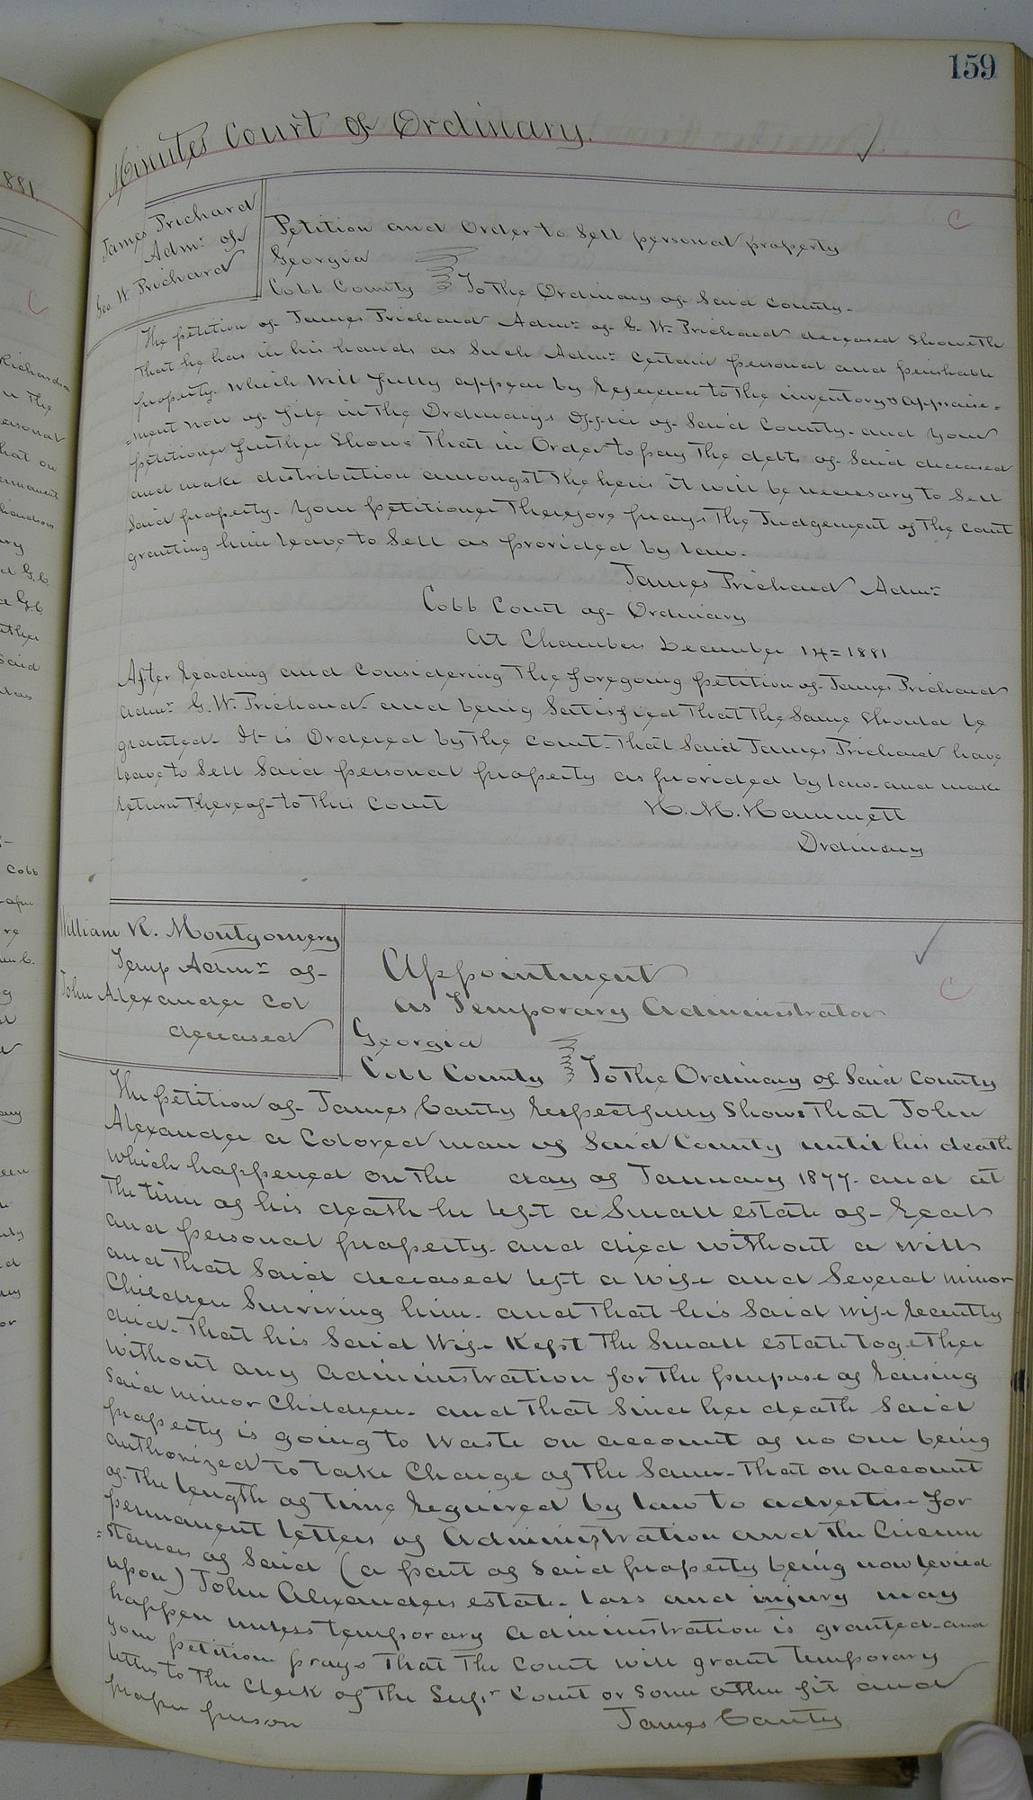 159
Minutes Court of Ordinary.
James Prichard
Admr. of
Geo W. Prichard
Petition and Order to Sell personal property
Georgia
Cobb County To the Ordinary of Said County.
The petition of James Prichard Admr. of G. W. Prichard deceased Showeth
that he has in his hands as Such Admr. Certain personal and perishable
property. Which will fully appear by Reference to the inventory & appraise=
=ment now of file in the Ordinarys Office of Said County. and your
petitioner further Shows That in Order to pay The debts of Said deceased
and make distribution amongst the heirs it will be necessary to Sell
Said property. Your petitioner Therefore prays The Judgement of The Court
granting him leave to Sell as provided by law.
James Prichard Admr.
Cobb Court of Ordinary
At Chambers December 14=1881
After Reading and Considering The foregoing petition of James Prichard
Admr. G. W. Prichard and being Satisfied That The Same Should be
granted. It is Ordered by The Court. That Said James Prichard have
leave to Sell Said personal property as provided by law. and make
return Thereof to This Court
H. M. Hammett
Ordinary
William R. Montgomery
Temp Admr. of
John Alexander Col
deceased
Appointment
as Temporary Administrator
Georgia
Cobb County To The Ordinary of Said County
The petition of James Canty Respectfully Shows That John
Alexander a Colored man of Said County until his death
which happened on the day of January 1877. and at
The time of his death he left a Small estate of Real
and personal property. and died without a will
and That Said deceased left a wife and Several minor
Children Surviving him. and That his Said wife Recently
died. That his Said Wife Kept The Small estate together
without any Administration for The purpose of Raising
Said minor Children. and That Since her death Said
property is going to Waste on account of no one being
authorized to take Charge of The Same. That on account
of The length of time Required by law to advertise for
permanent letters of Administration and The Circum
=stances of Said (a part of Said property being now levied
upon) John Alexanders estate. loss and injury may
happen unless temporary Administration is granted. and
your petition prays That The Court will grant temporary
letters to The Clerk of The Supr Court or Some other fit and
proper person
James Canty